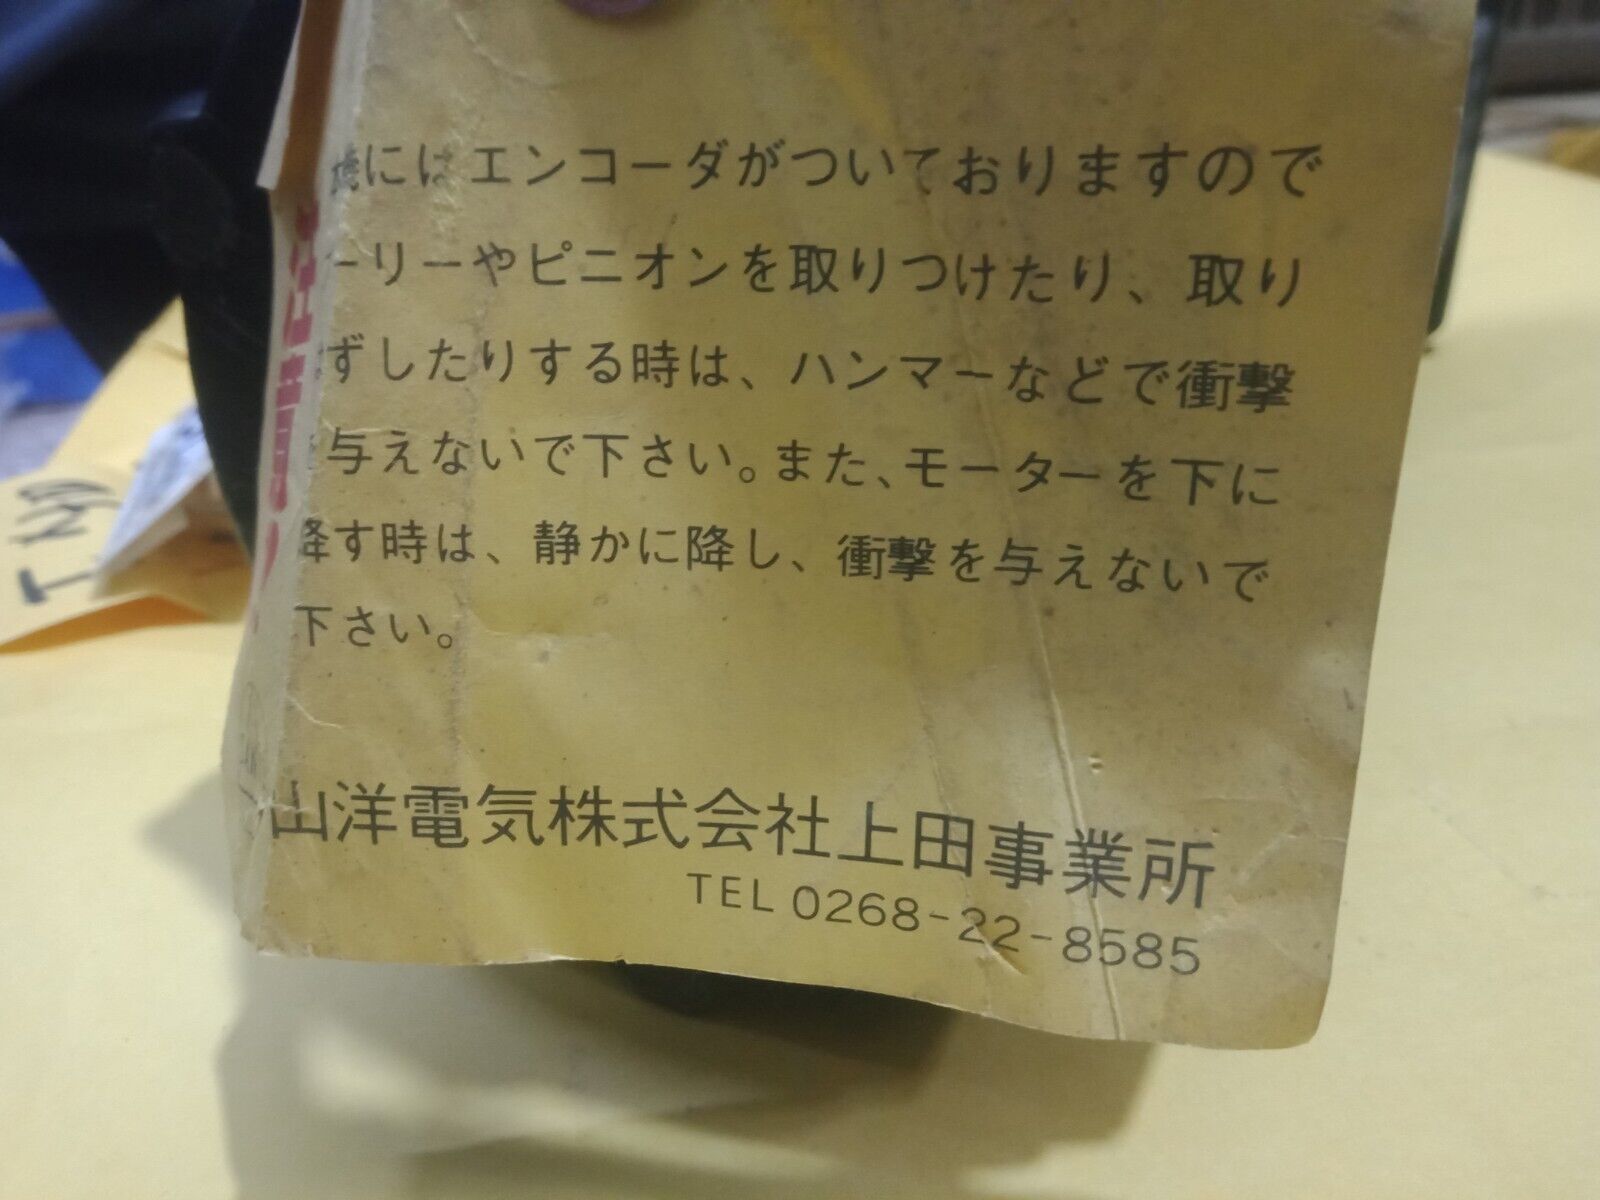 機にはエンコーダがついておりますので
ーリーやピニオンを取りつけたり、取り
ずしたりする時は、ハンマーなどで衝撃
与えないで下さい。また、モーターを下に
降す時は、静かに降し、衝撃を与えないで
下さい。
山洋電気株式会社上田事業所
TEL 0268-22-8585
注意